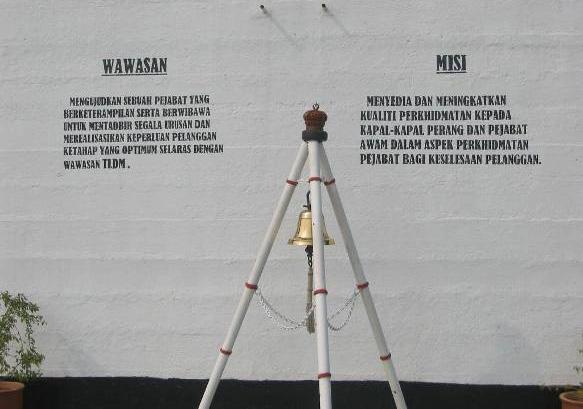 WAWASAN
MENGUJUDKAN SEBUAH PEJABAT YANG
BERKETERAMPILAN SERTA BERWIBAWA
UNTUK MENTADBIR SEGALA URUSAN DAN
MEREALISASIKAN KEPERLUAN PELANGGAN
KETAHAP YANG OPTIMUM SELARAS DENGAN
WAWASAN TLDM .
MISI
MENYEDIA DAN MENINGKATKAN
KUALITI PERKHIDMATAN KEPADA
KAPAL-KAPAL PERANG DAN PEJABAT
AWAM DALAM ASPEK PERKHIDMATAN
PEJABAT BAGI KESELESAAN PELANGGAN.